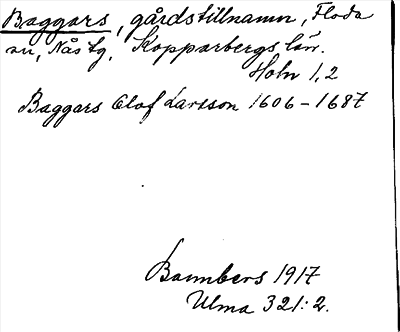 Baggars, gårdstillnamn, Floda
sn, Nås tg, Kopparbergs län.
Holn 1,2
Baggars Olof Larsson 1606-1687
1917
Ulma 321:2.